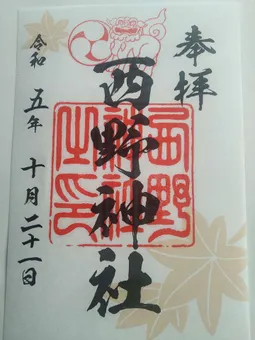 奉拝
西野神社
西野神社之印
令和五年十月二十一日